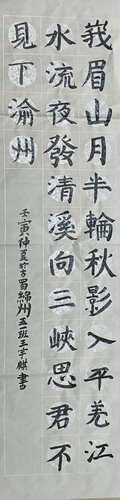 峩眉山月半輪秋影入平羌江
水流夜發清溪向三峽思君不
見下渝州
壬寅仲夏於古蜀綿州五班王宇麒書